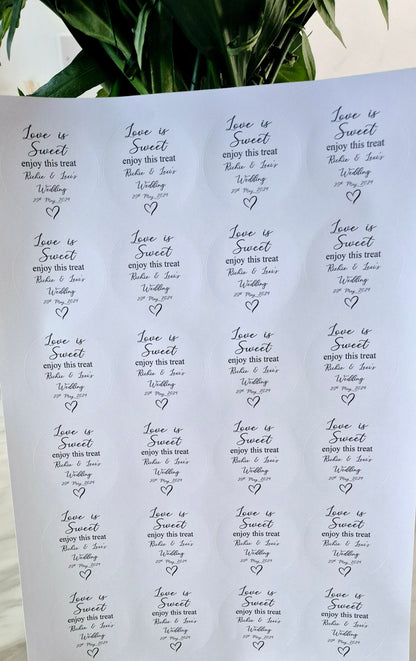 Love is
Sweet
enjoy this treat
Richie &
Wedding
May, 2024
Love is
Sweet
enjoy this treat
Richie &
Wedding
May, 2024
Love is
Sweet
enjoy this treat
Richie &
Wedding
May, 2024
Love is
Sweet
enjoy this treat
Richie &
Wedding
May, 2024
Love is
Sweet
enjoy this treat
Richie &
Wedding
May, 2024
Love is
Sweet
enjoy this treat
Richie &
Wedding
May, 2024
Love is
Sweet
enjoy this treat
Richie &
Wedding
May, 2024
Love is
Sweet
enjoy this treat
Richie &
Wedding
May, 2024
Love is
Sweet
enjoy this treat
Richie &
Wedding
May, 2024
Love is
Sweet
enjoy this treat
Richie &
Wedding
May, 2024
Love is
Sweet
enjoy this treat
Richie &
Wedding
May, 2024
Love is
Sweet
enjoy this treat
Richie &
Wedding
May, 2024
Love is
Sweet
enjoy this treat
Richie &
Wedding
May, 2024
Love is
Sweet
enjoy this treat
Richie &
Wedding
May, 2024
Love is
Sweet
enjoy this treat
Richie &
Wedding
May, 2024
Love is
Sweet
enjoy this treat
Richie &
Wedding
May, 2024
Love is
Sweet
enjoy this treat
Richie &
Wedding
May, 2024
Love is
Sweet
enjoy this treat
Richie &
Wedding
May, 2024
Love is
Sweet
enjoy this treat
Richie &
Wedding
May, 2024
Love is
Sweet
enjoy this treat
Richie &
Wedding
May, 2024
Love is
Sweet
enjoy this treat
Richie &
Wedding
May, 2024
Love is
Sweet
enjoy this treat
Richie &
Wedding
May, 2024
Love is
Sweet
enjoy this treat
Richie &
Wedding
May, 2024
Love is
Sweet
enjoy this treat
Richie &
Wedding
May, 2024